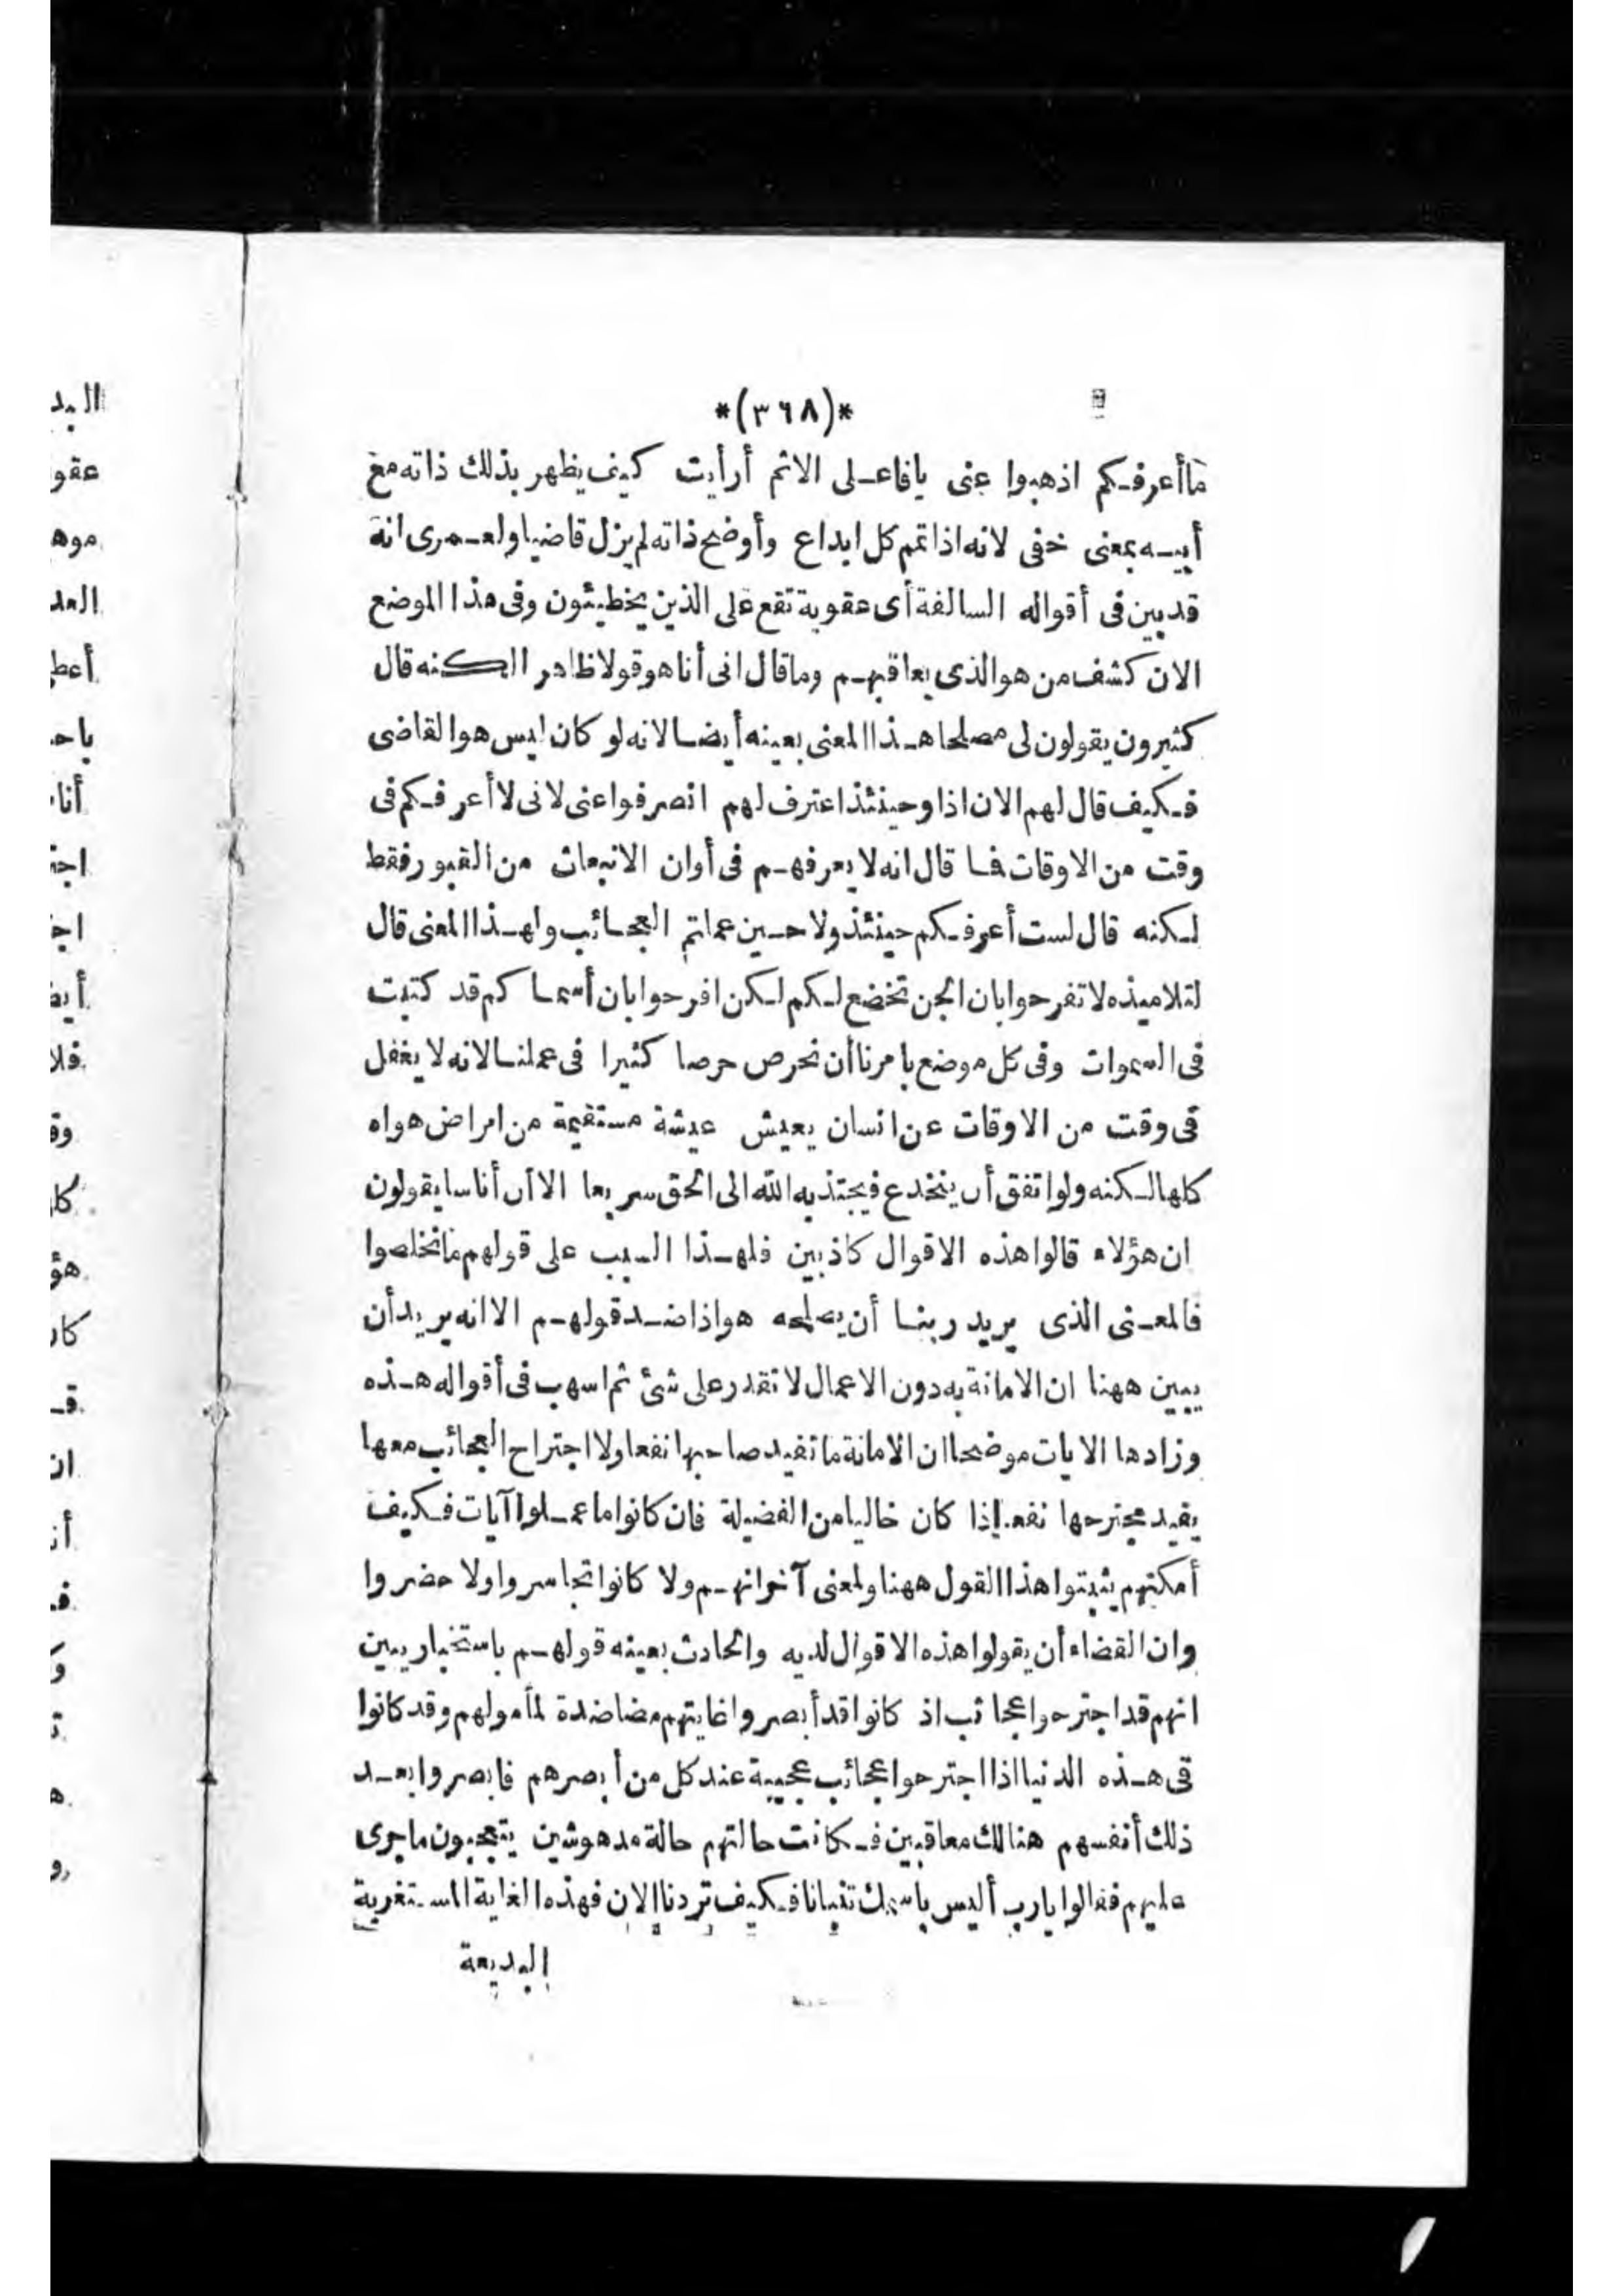 *(٣٦٨)*
ما أعرفكم اذهبوا عنى يافاعلى الاثم أرأيت كيف يظهر بذلك ذاته مع
أبيه بمعنى خفى لانه اذا تمم كل ابداع وأوضح ذاته لم يزل قاضيا ولعمرى انه
قد بين فى أقواله السالفة أى عقوبة تقع على الذين يخطيئون وفى هذا الموضع
الان كشف من هو الذى يعاقبهم وما قال انى أنا هو قولا ظاهر الكنه قال
كثيرون يقولون لى مصلحا هذا المعنى بعينه أيضا لانه لو كان ليس هو القاضى
فكيف قال لهم الان اذا وحينئذ اعترف لهم انصرفوا عنى لانى لا أعرفكم فى
وقت من الاوقات فما قال انه لا يعرفهم فى أوان الانبعاث من القبور فقط
لكنه قال لست أعرفكم حينئذ ولا حين عملتم العجائب ولهذا المعنى قال
لتلاميذه لا تفرحوا بان الجن تخضع لكم لكن افرحوا بان أسماكم قد كتبت
فى السموات وفى كل موضع يامرنا أن نحرص حرصا كثيرا فى عملنا لانه لا يغفل
فى وقت من الاوقات عن انسان يعيش عيشة مستقيمة من امراض هواه
كلها لكنه ولو اتفق أن ينخدع فيجتذبه الله الى الحق سريعا الا أن أناسا يقولون
ان هؤلاء قالوا هذه الاقوال كاذبين فلهذا السبب على قولهم ما تخلصوا
فالمعنى الذى يريد ربنا أن يصلحه هو اذا ضد قولهم الا انه يريد أن
يبين ههنا ان الامانة بدون الاعمال لا تقدر على شئ ثم اسهب فى أقواله هذه
وزادها الايات موضحا ان الامانة ما تفيد صاحبها نفعا ولا اجتراح العجائب معها
يفيد مجترحها نفعا اذا كان خاليا من الفضيلة فان كانوا ما عملوا آيات فكيف
أمكنهم يثبتوا هذا القول ههنا ولمعنى آخر انهم ولا كانوا تجاسروا ولا حضروا
وان القضاء أن يقولوا هذه الاقوال لديه والحادث بعينه قولهم باستخبار يبين
انهم قد اجترحوا عجائب اذ كانوا قد أبصروا غايتهم مضاضدة لمأمولهم وقد كانوا
فى هذه الدنيا اذا اجترحوا عجائب عجيبة عند كل من أبصرهم فابصروا بعد
ذلك أنفسهم هنالك معاقبين فكانت حالتهم حالة مدهوشين يتعجبون ما جرى
عليهم فقالوا يارب أليس باسمك تنبانا فكيف تردنا الان فهذه الغاية المستغربة
البديعة